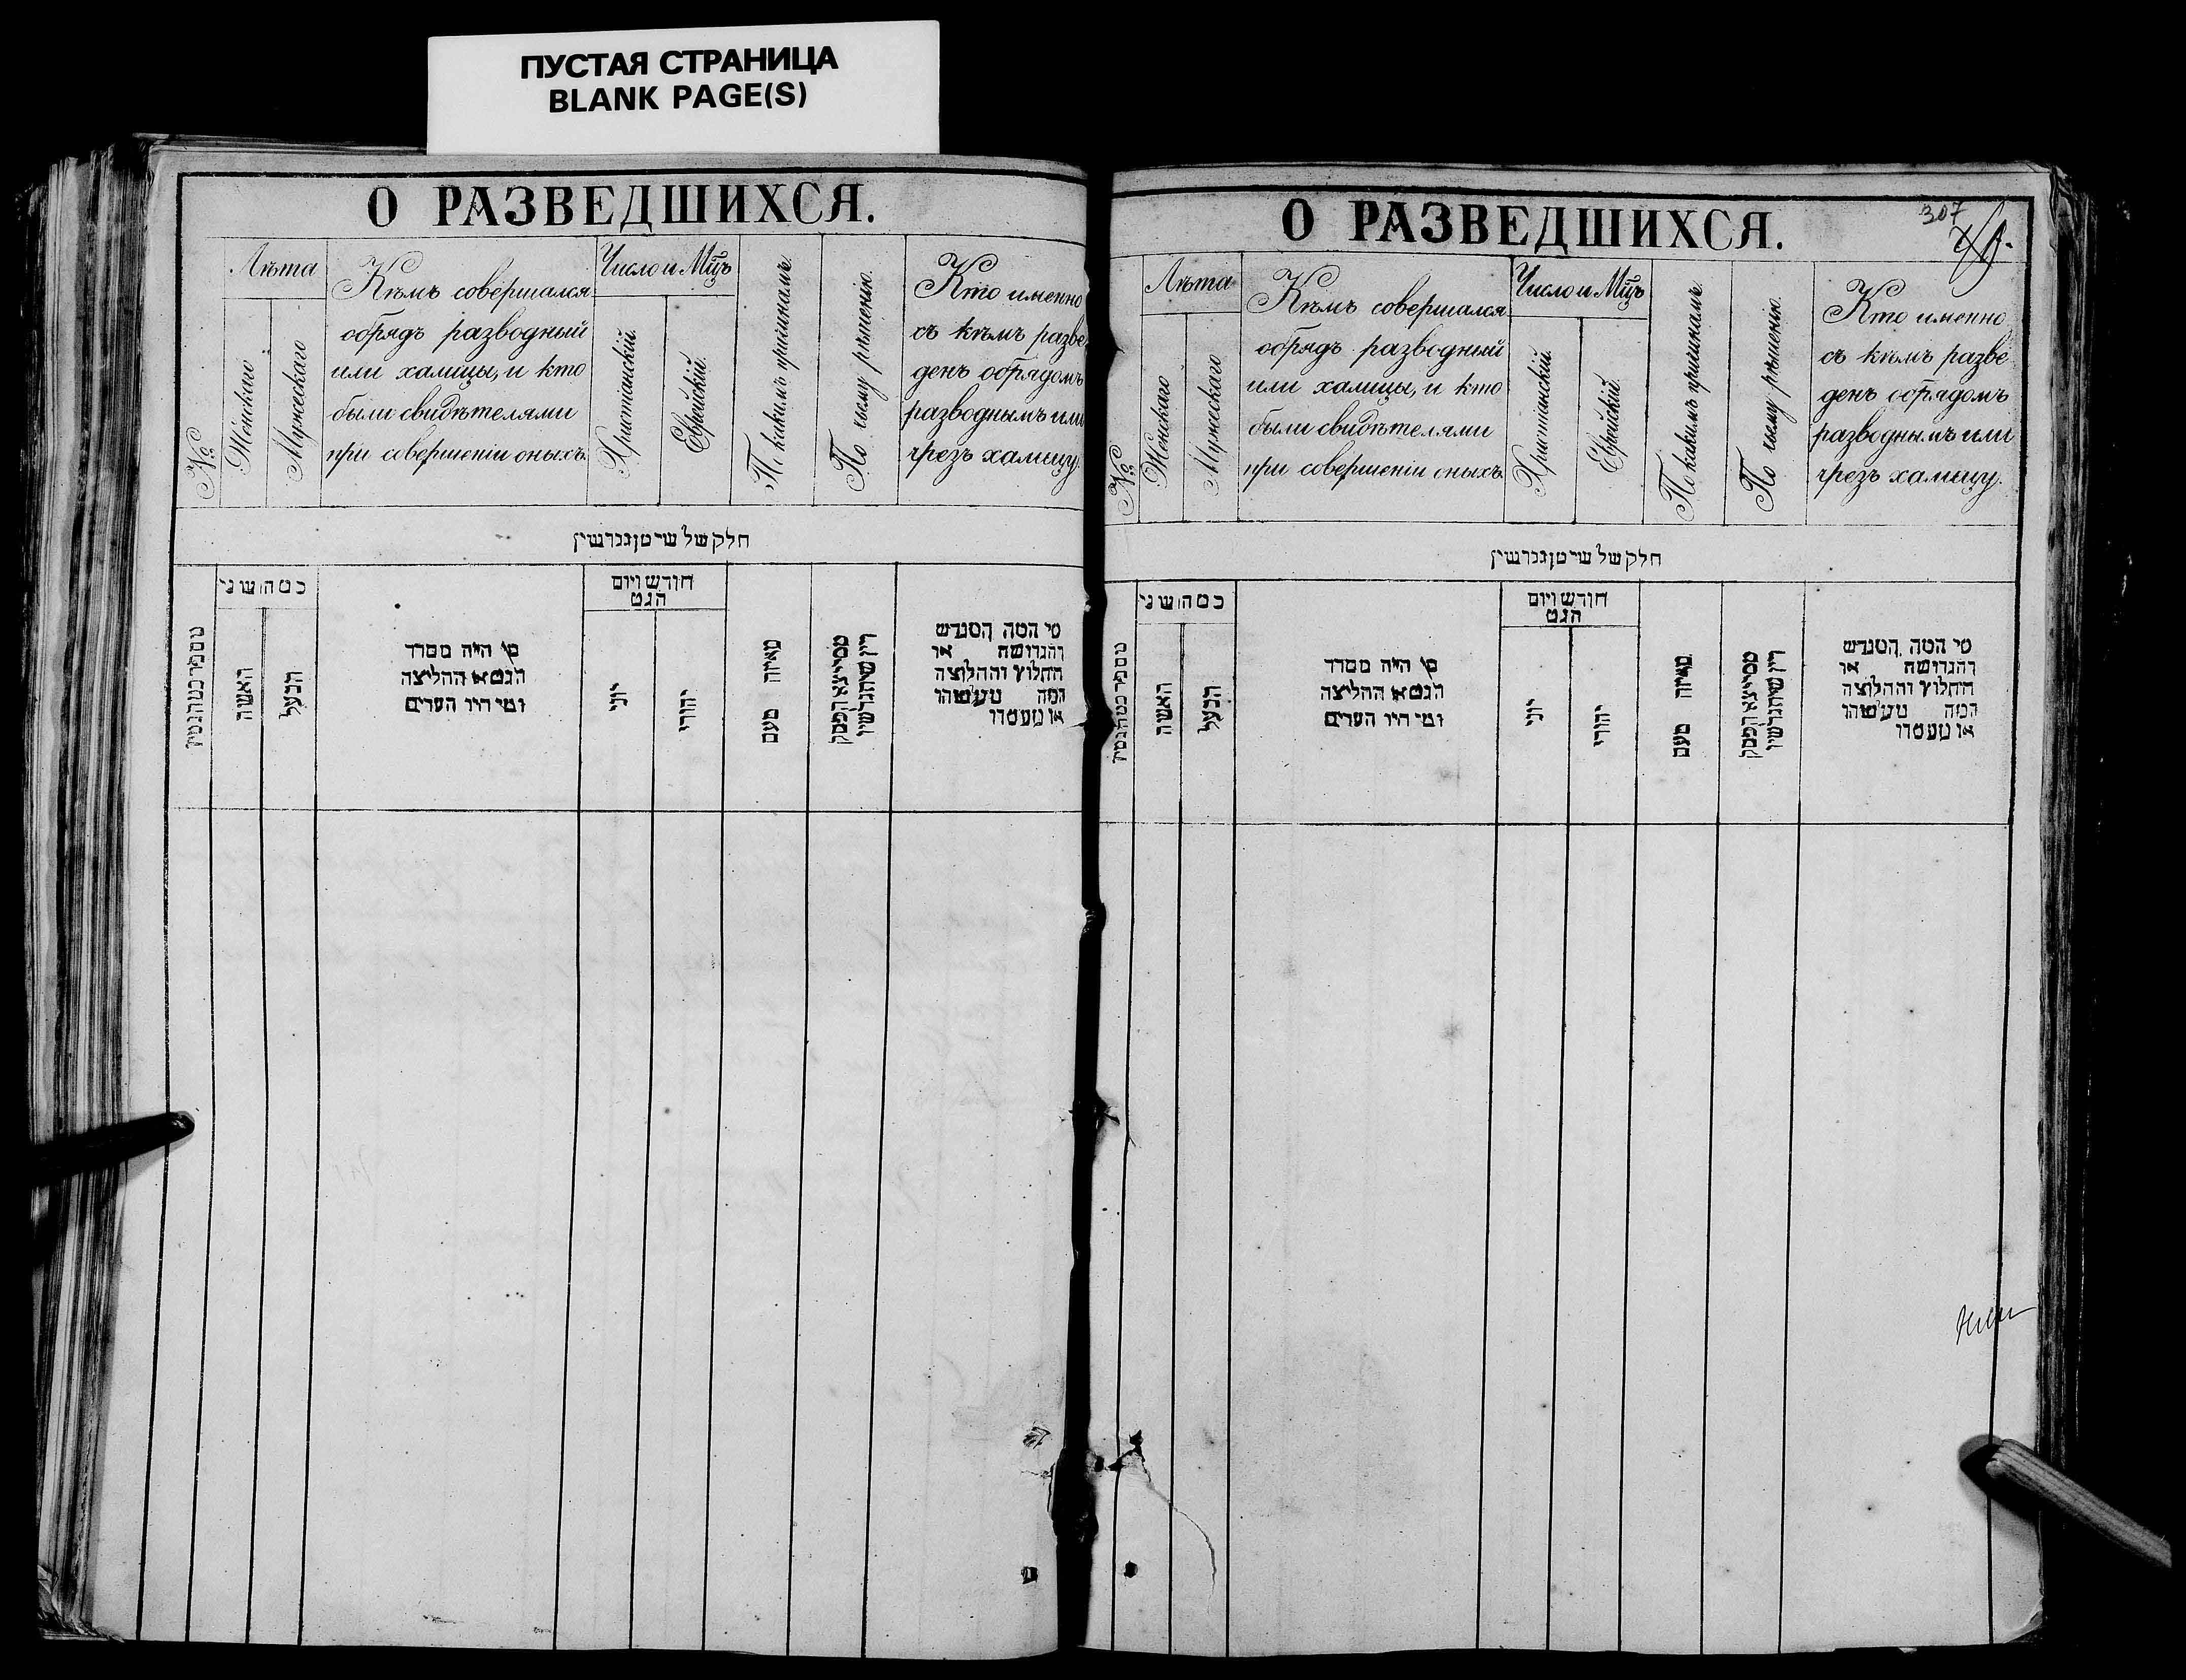 ПУСТАЯ СТРАНИЦА
BLANK PAGE(S)
О РАЗВЕДШИХСЯ.
№
Лѣта
Женскаго
Мужескаго
Кѣмъ совершался
обрядъ разводный
или халицы, и кто
были свидѣтелями
при совершеніи оныхъ.
Число и Мцъ
Христіанскій.
Еврейскій.
По какимъ причинамъ.
По чьему рѣшенію.
Кто именно
съ кѣмъ разве
денъ обрядомъ
разводнымъ или
чрезъ халицу.
חלק של
האשה
הבעל
מי היה מסדר
הגט או החליצה
ומי היו העדים
חודש ויום
הגט
יוני
יהודי
מאיזה טעם
מי המה המגרש
והגרושה או
החולץ והחלוצה
המה
או
О РАЗВЕДШИХСЯ.
307
№
Лѣта
Женскаго
Мужескаго
Кѣмъ совершался
обрядъ разводный
или халицы, и кто
были свидѣтелями
при совершеніи оныхъ.
Число и Мцъ
Христіанскій.
Еврейскій.
По какимъ причинамъ.
По чьему рѣшенію.
Кто именно
съ кѣмъ разве
денъ обрядомъ
разводнымъ или
чрезъ халицу.
חלק של
האשה
הבעל
מי היה מסדר
הגט או החליצה
ומי היו העדים
חודש ויום
הגט
יוני
יהודי
מאיזה טעם
מי המה המגרש
והגרושה או
החולץ והחלוצה
המה
או